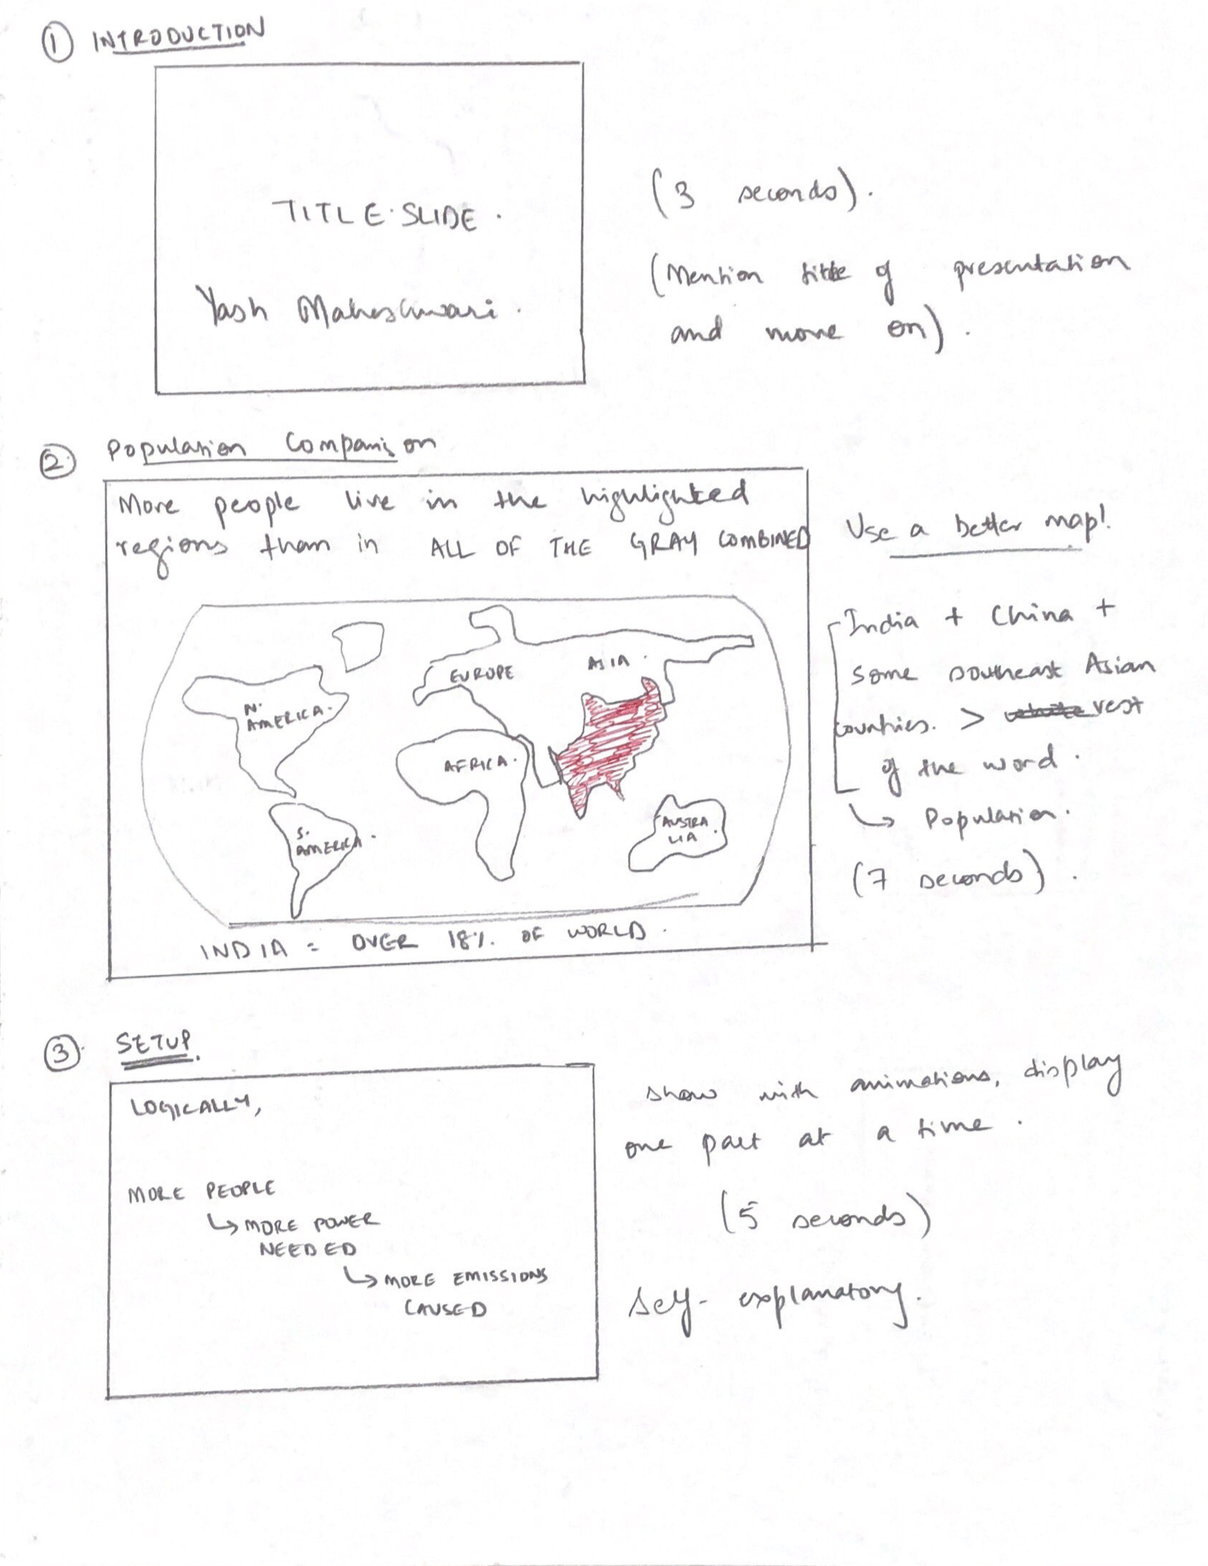 ① INTRODUCTION
TITLE SLIDE.
Yash Maheshwari.
(3 seconds).
(Mention title of presentation
and move on).
② Population Comparison
More people live in the highlighted
regions than in ALL OF THE GRAY COMBINED
N. AMERICA.
EUROPE
ASIA.
AFRICA.
S. AMERICA.
AUSTRA
LIA.
INDIA = OVER 18% OF WORLD.
Use a better map!
India + China +
some southeast Asian
countries. > rest
of the word.
↳ Population.
(7 seconds).
③. SETUP.
LOGICALLY,
MORE PEOPLE
↳ MORE POWER
NEEDED
↳ MORE EMISSIONS
CAUSED
show with animations, display
one part at a time.
(5 seconds)
Self-explanatory.